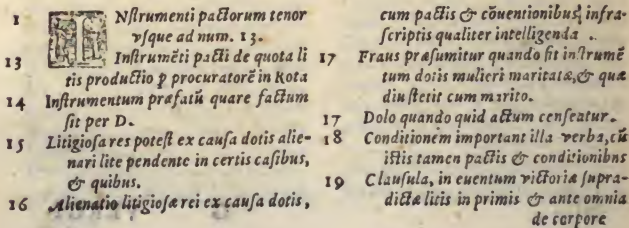 1 INſtrumenti pactorum tenor
vſque ad num. 13.
13 Inſtrumẽti pacti de quota li
tis productio p procuratorẽ in Rota
14 Inſtrumentum præfatũ quare factum
ſit per D.
15 Litigioſa res poteſt ex cauſa dotis alie-
nari lite pendente in certis caſibus,
& quibus.
16 Alienatio litigioſæ rei ex cauſa dotis,
cum pactis & cõuentionibusq; infra-
ſcriptis qualiter intelligenda .
17 Fraus præſumitur quando fit inſtrumẽ
tum dotis mulieri maritatæ, & quæ
diu ſtetit cum marito.
17 Dolo quando quid actum cenſeatur.
18 Conditionem important illa verba, cũ
iſtis tamen pactis & conditionibns
19 Clauſula, in euentum victoriæ ſupra-
dictæ litis in primis & ante omnia
de corpore